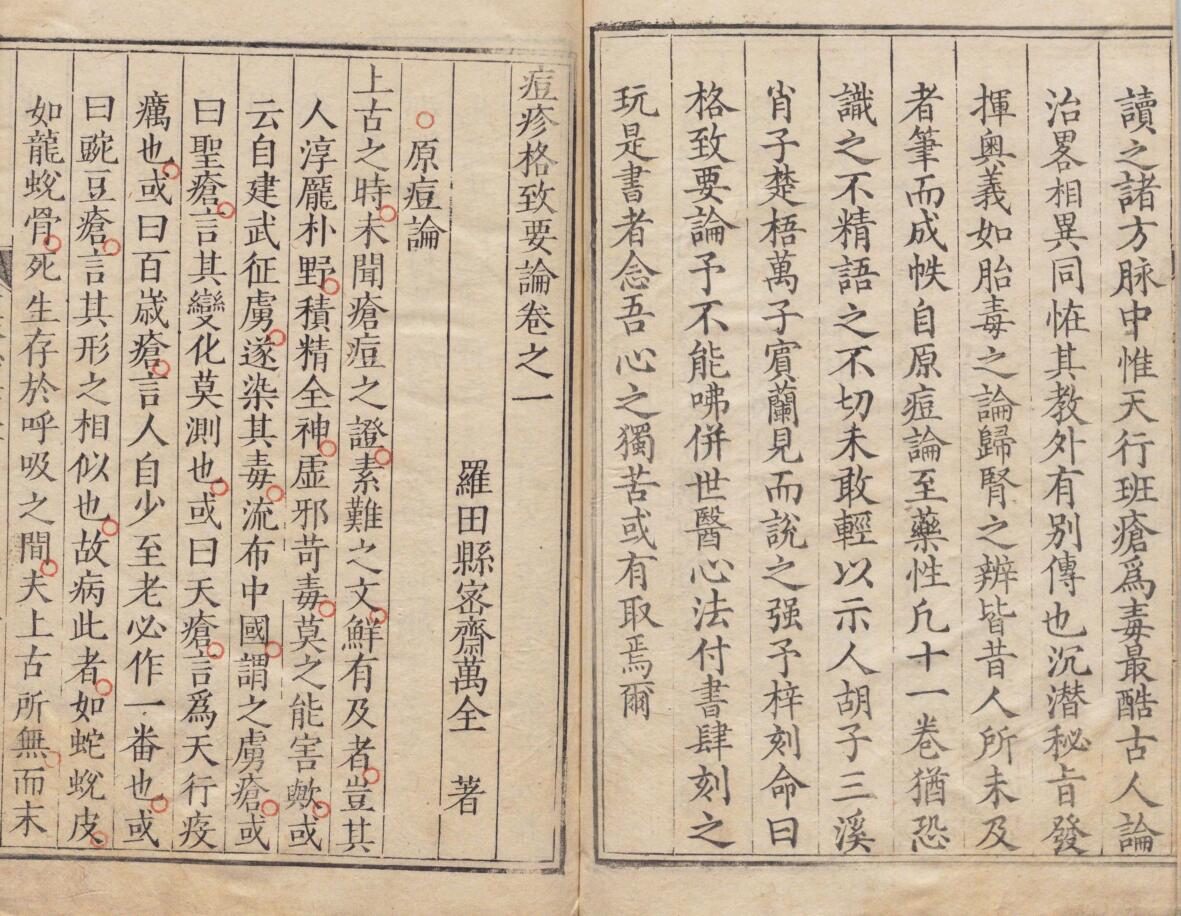 讀之諸方脉中惟天行班瘡爲毒最酷古人論
治畧相異同恠其教外有別傳也沉潜秘旨發
揮奥義如胎毒之論歸腎之辨皆昔人所未及
者筆而成帙自原痘論至藥性凢十一卷猶恐
識之不精語之不切未敢輕以示人胡子三溪
肖子楚梧萬子賔蘭見而説之强予梓刻命曰
格致要論予不能咈併世醫心法付書肆刻之
玩是書者念吾心之獨苦或有取焉爾
痘疹格致要論卷之一
羅田縣宻齋萬全 著
○原痘論
上古之時未聞瘡痘之證素難之文鮮有及者豈其
人淳厖朴野積精全神虛邪苛毒莫之能害歟或
云自建武征虜遂染其毒流布中國謂之虜瘡或
曰聖瘡言其變化莫測也或曰天瘡言爲天行疫
癘也或曰百歳瘡言人自少至老必作一番也或
曰豌豆瘡言其形之相似也故病此者如蛇蛻皮
如龍蛻骨死生存於呼吸之間夫上古所無而末